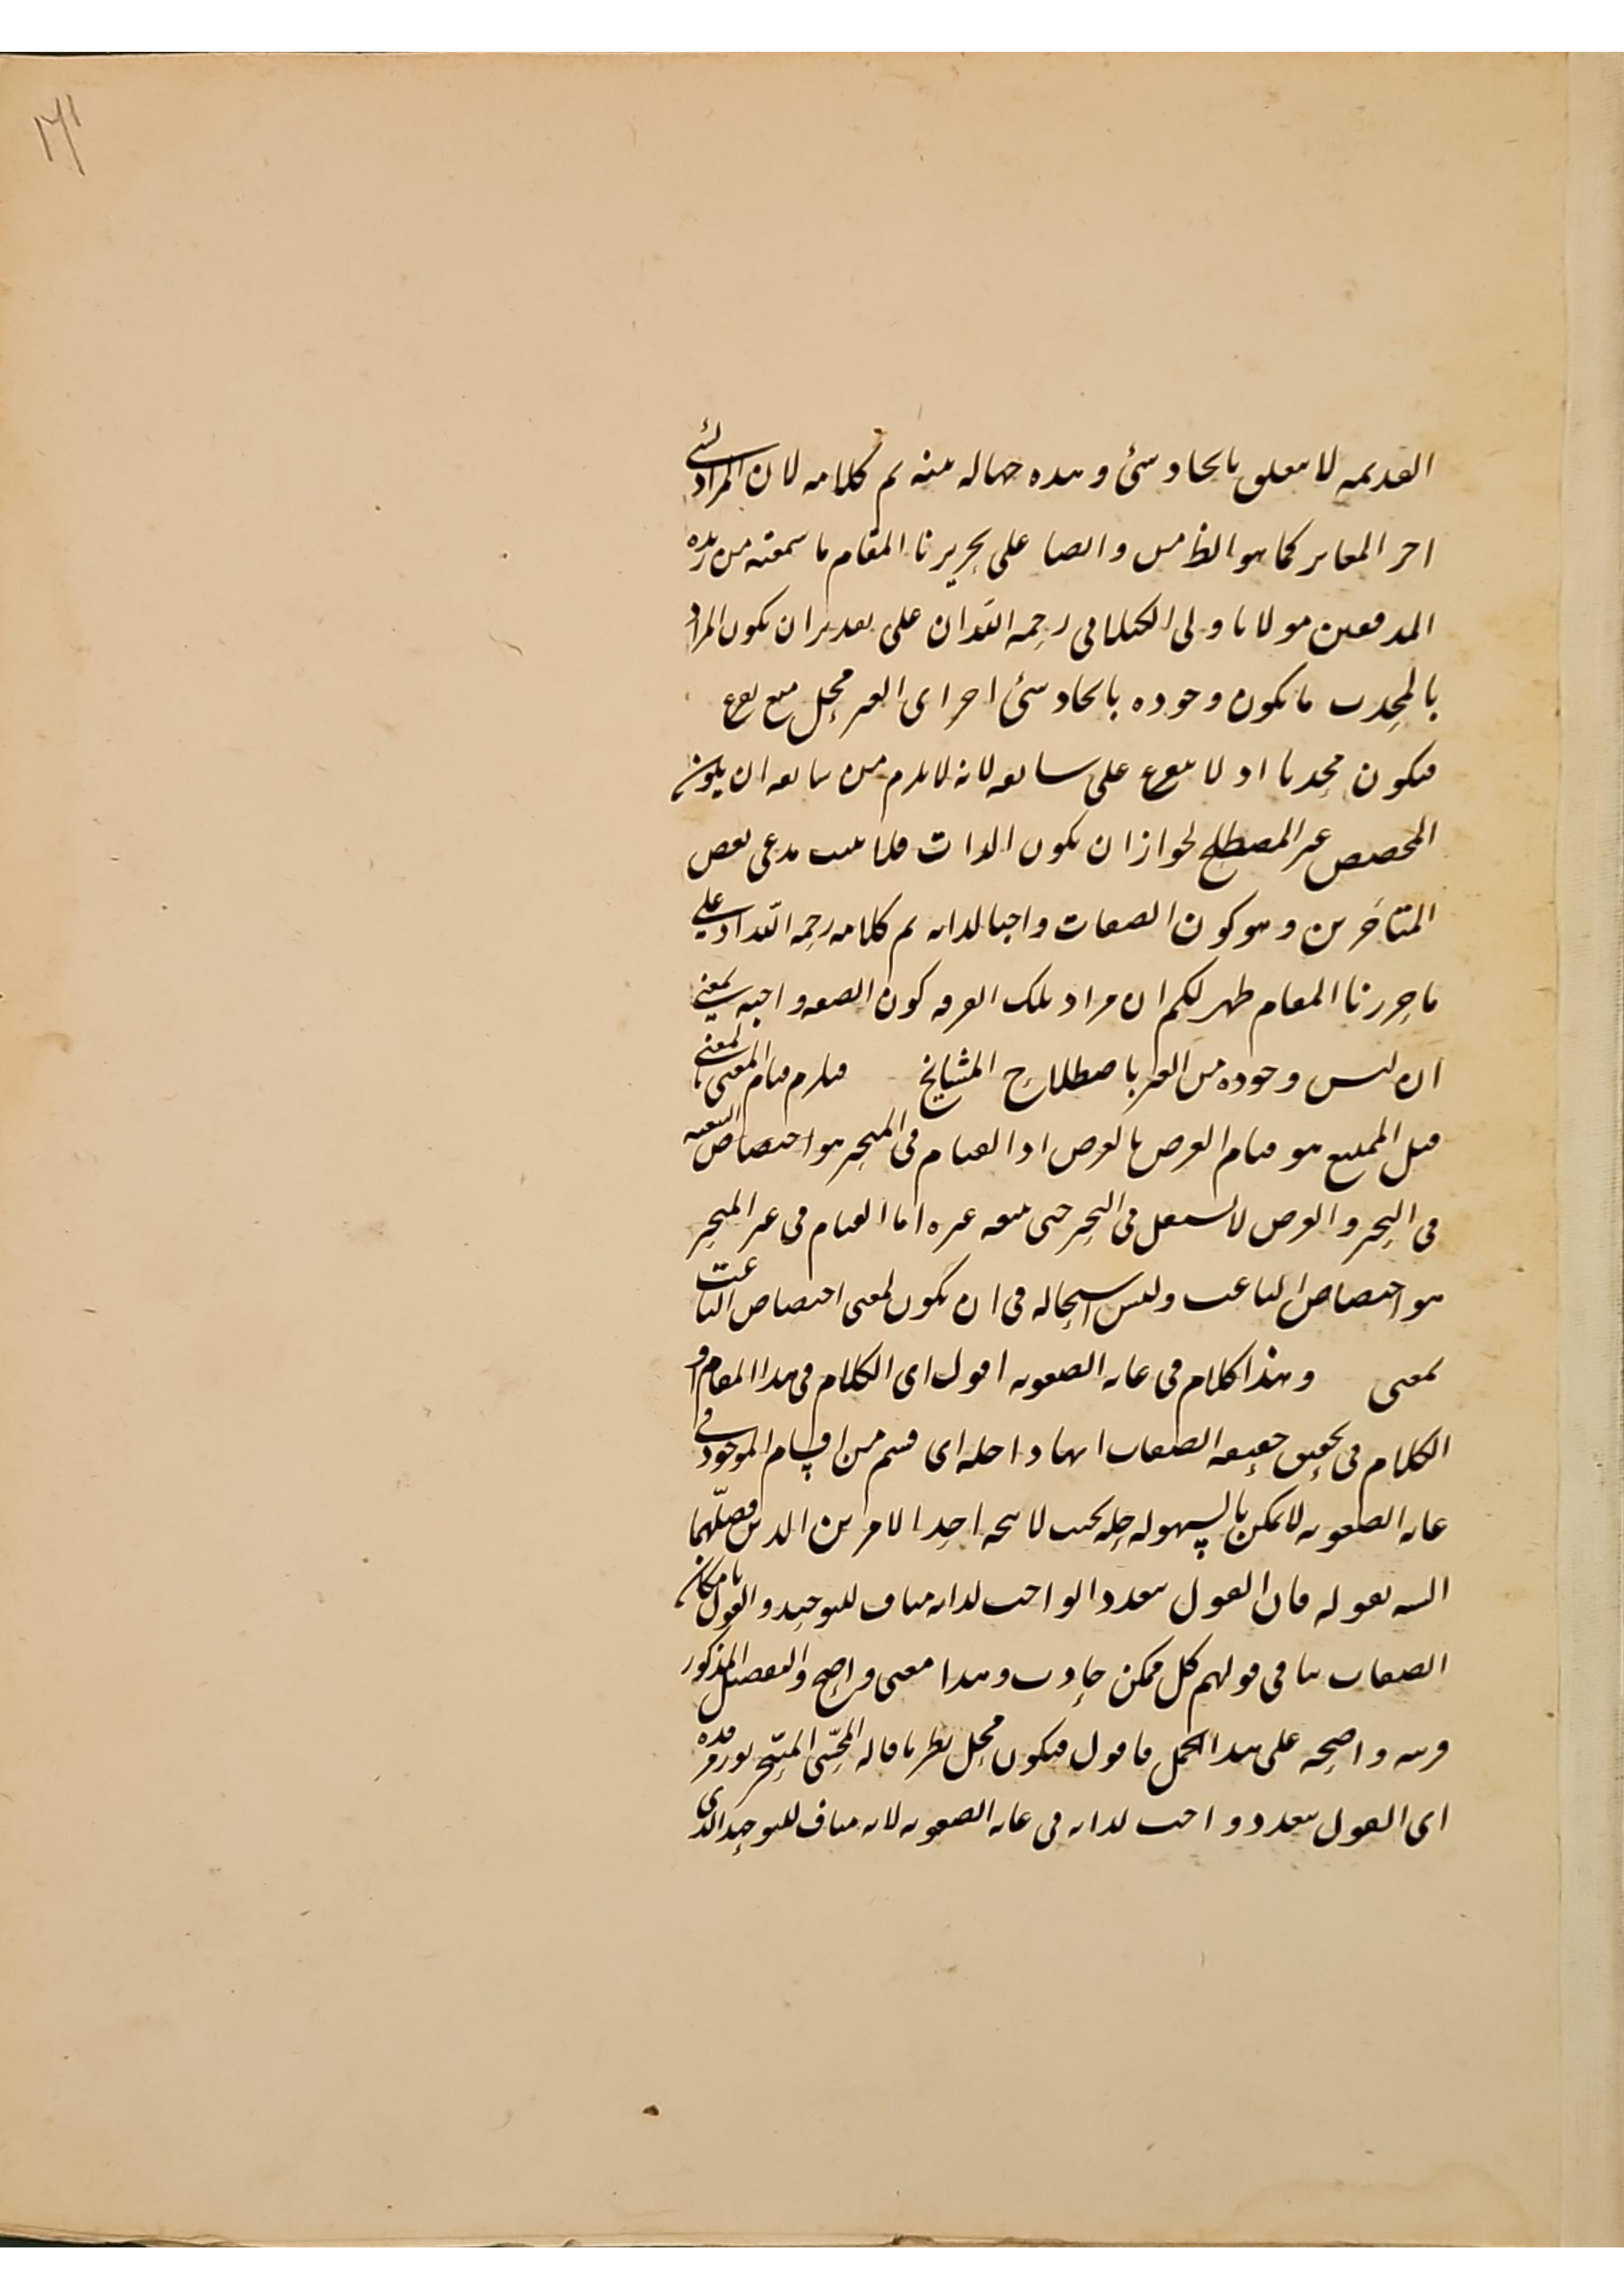 ١٧١
القديمه لا تتعلق بايجاد شئ وهذه جهاله بينه تم كلامه لان المراد بشئ
اخر المغاير كما هو الظ من وايضا على تحريرنا المقام ما سمعته من زبدة
المدققين مولانا ولى الكيلانى رحمه الله ان على تقدير ان يكون المراد
بالمحدث ما يكون وجوده بايجاد شئ اخر اى الغير محل منع
فيكون محدثا اذ لا على لانه لا يلزم من ان يكون
المخصص غير المصطلح لجواز ان يكون الذات فلا يثبت مدعى بعض
المتاخرين وهو كون الصفات واجبا لذاته تم كلامه رحمه الله اذ على
ما حررنا المقام ظهر لكم ان مراد تلك الفرقه كون الصفه واجبه بمعنى
ان ليس وجوده من الغير باصطلاح المشايخ فيلزم قيام المعنى بالمعنى
قيل الممتنع هو قيام العرض بالعرض اذ القيام فى المتحيز هو اختصاص التبعيه
فى التحيز والعرض لا يستقل فى التحيز حتى يتبعه غيره اما القيام فى غير المتحيز
هو اختصاص الناعت وليس استحاله فى ان يكون لمعنى اختصاص الناعت
بمعنى وهذا كلام فى غايه الصعوبه اقول اى الكلام فى هذا المقام او
الكلام فى تحقيق حقيقه الصفات انها داخله اى قسم من اقسام الموجود فى
غايه الصعوبه لا يمكن بالسهوله حله بحيث لا يتجه احد الامرين الذين فصلهما
اليه بقوله فان القول بتعدد الواجب لذاته مناف للتوحيد والقول بامكان
الصفات ينافى قولهم كل ممكن حادث وهذا معنى واضح والتفصيل المذكور
قرينه واضحه على هذا الحمل فاقول فيكون محل نظر ما قاله المحشى المتبحر نور مرقده
اى القول بتعدد واجب لذاته فى غايه الصعوبه لانه مناف للتوحيد الذى